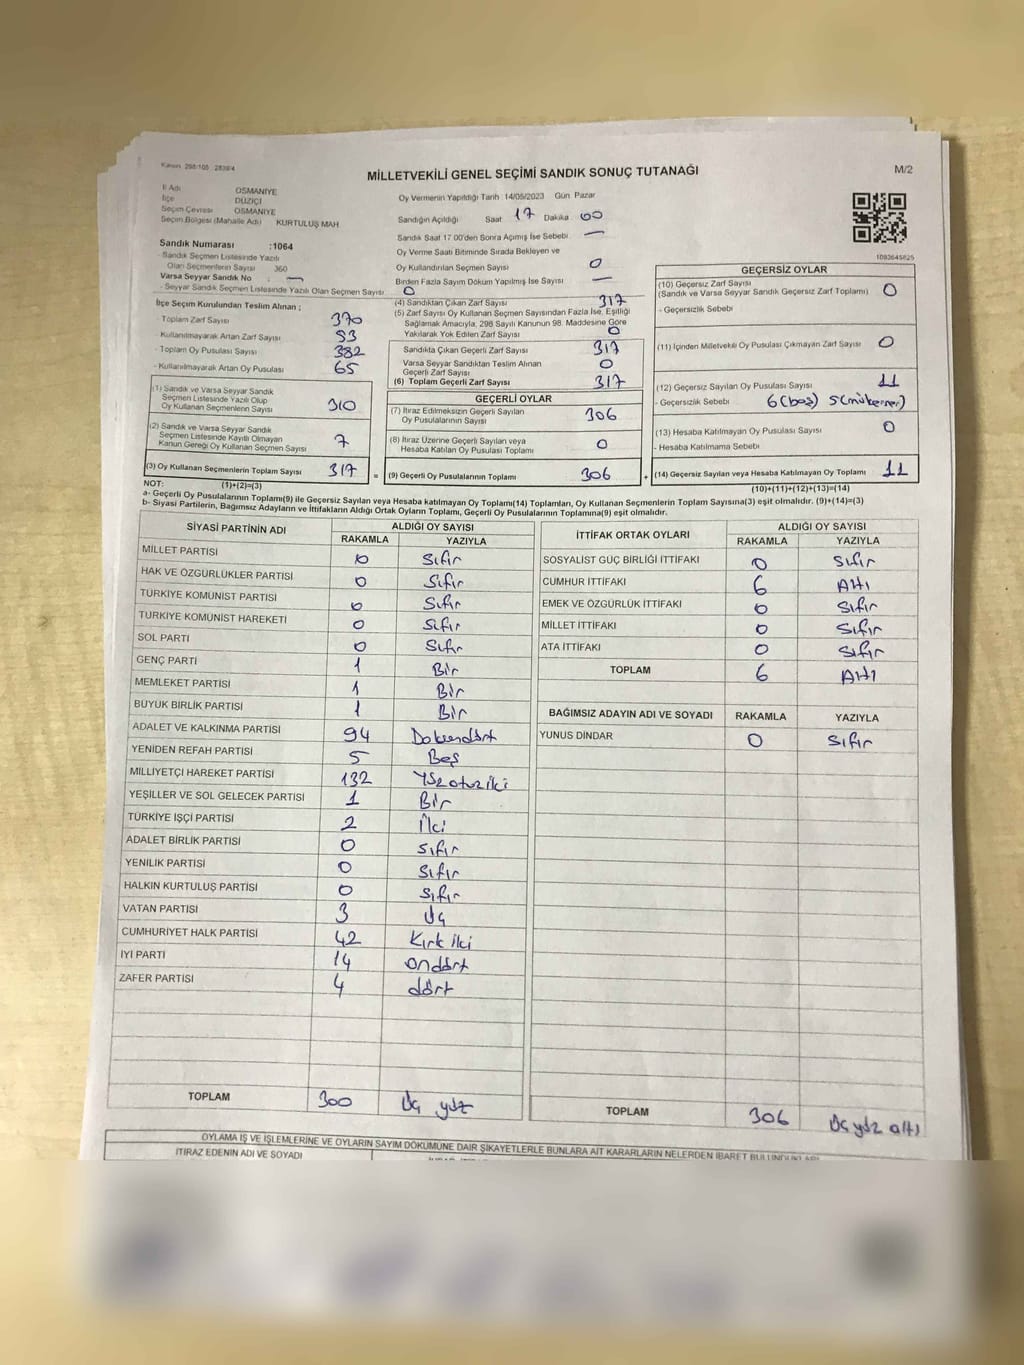 Kanun 298/105 2839/4
MİLLETVEKİLİ GENEL SEÇİMİ SANDIK SONUÇ TUTANAĞI
M/2
İl Adı OSMANİYE
İlçe DÜZİÇİ
Seçim Çevresi OSMANİYE
Seçim Bölgesi (Mahalle Adı) KURTULUŞ MAH
Sandık Numarası :1064
- Sandık Seçmen Listesinde Yazılı
Olan Seçmenlerin Sayısı 360
Varsa Seyyar Sandık No : —
- Seyyar Sandık Seçmen Listesinde Yazılı Olan Seçmen Sayısı : 0
Oy Vermenin Yapıldığı Tarih 14/05/2023 Gün Pazar
Sandığın Açıldığı Saat 17 Dakika 00
Sandık Saat 17 00'den Sonra Açımış İse Sebebi —
Oy Verme Saati Bitiminde Sırada Bekleyen ve
Oy Kullandırılan Seçmen Sayısı 0
Birden Fazla Sayım Döküm Yapılmış İse Sayısı —
1093645625
İlçe Seçim Kurulundan Teslim Alınan ;
- Toplam Zarf Sayısı 370
- Kullanılmayarak Artan Zarf Sayısı 53
- Toplam Oy Pusulası Sayısı 382
- Kullanılmayarak Artan Oy Pusulası 65
(1) Sandık ve Varsa Seyyar Sandık
Seçmen Listesinde Yazılı Olup
Oy Kullanan Seçmenlerin Sayısı 310
(2) Sandık ve Varsa Seyyar Sandık
Seçmen Listesinde Kayıtlı Olmayan
Kanun Gereği Oy Kullanan Seçmen Sayısı 7
(3) Oy Kullanan Seçmenlerin Toplam Sayısı 317 =
(4) Sandıktan Çıkan Zarf Sayısı 317
(5) Zarf Sayısı Oy Kullanan Seçmen Sayısından Fazla İse, Eşitliği
Sağlamak Amacıyla, 298 Sayılı Kanunun 98. Maddesine Göre
Yakılarak Yok Edilen Zarf Sayısı 0
Sandıkta Çıkan Geçerli Zarf Sayısı 317
Varsa Seyyar Sandıktan Teslim Alınan
Geçerli Zarf Sayısı 0
(6) Toplam Geçerli Zarf Sayısı 317
GEÇERLİ OYLAR
(7) İtiraz Edilmeksizin Geçerli Sayılan
Oy Pusulasının Sayısı 306
(8) İtiraz Üzerine Geçerli Sayılan veya
Hesaba Katılan Oy Pusulası Toplamı 0
(9) Geçerli Oy Pusulalarının Toplamı 306 +
GEÇERSİZ OYLAR
(10) Geçersiz Zarf Sayısı
(Sandık ve Varsa Seyyar Sandık Geçersiz Zarf Toplamı) 0
- Geçersizlik Sebebi
(11) İçinden Milletvekili Oy Pusulası Çıkmayan Zarf Sayısı 0
(12) Geçersiz Sayılan Oy Pusulası Sayısı 11
- Geçersizlik Sebebi 6(boş) 5(mükerrer)
(13) Hesaba Katılmayan Oy Pusulası Sayısı 0
- Hesaba Katılmama Sebebi
(14) Geçersiz Sayılan veya Hesaba Katılmayan Oy Toplamı 11
NOT: (1)+(2)=(3) (10)+(11)+(12)+(13)=(14)
a- Geçerli Oy Pusulalarının Toplamı(9) ile Geçersiz Sayılan veya Hesaba katılmayan Oy Toplamı(14) Toplamları, Oy Kullanan Seçmenlerin Toplam Sayısına(3) eşit olmalıdır. (9)+(14)=(3)
b- Siyasi Partilerin, Bağımsız Adayların ve İttifakların Aldığı Ortak Oyların Toplamı, Geçerli Oy Pusulalarının Toplamına(9) eşit olmalıdır.
SİYASİ PARTİNİN ADI ALDIĞI OY SAYISI
RAKAMLA YAZIYLA
MİLLET PARTİSİ 0 Sıfır
HAK VE ÖZGÜRLÜKLER PARTİSİ 0 Sıfır
TÜRKİYE KOMÜNİST PARTİSİ 0 Sıfır
TÜRKİYE KOMÜNİST HAREKETİ 0 Sıfır
SOL PARTİ 0 Sıfır
GENÇ PARTİ 1 Bir
MEMLEKET PARTİSİ 1 Bir
BÜYÜK BİRLİK PARTİSİ 1 Bir
ADALET VE KALKINMA PARTİSİ 94 Doksandört
YENİDEN REFAH PARTİSİ 5 Beş
MİLLİYETÇİ HAREKET PARTİSİ 132 Yüzotuziki
YEŞİLLER VE SOL GELECEK PARTİSİ 1 Bir
TÜRKİYE İŞÇİ PARTİSİ 2 İki
ADALET BİRLİK PARTİSİ 0 sıfır
YENİLİK PARTİSİ 0 sıfır
HALKIN KURTULUŞ PARTİSİ 0 sıfır
VATAN PARTİSİ 3 Üç
CUMHURİYET HALK PARTİSİ 42 Kırk iki
İYİ PARTİ 14 ondört
ZAFER PARTİSİ 4 dört
TOPLAM 300 Üç yüz
İTTİFAK ORTAK OYLARI ALDIĞI OY SAYISI
RAKAMLA YAZIYLA
SOSYALİST GÜÇ BİRLİĞİ İTTİFAKI 0 Sıfır
CUMHUR İTTİFAKI 6 Altı
EMEK VE ÖZGÜRLÜK İTTİFAKI 0 sıfır
MİLLET İTTİFAKI 0 sıfır
ATA İTTİFAKI 0 sıfır
TOPLAM 6 Altı
BAĞIMSIZ ADAYIN ADI VE SOYADI RAKAMLA YAZIYLA
YUNUS DİNDAR 0 sıfır
TOPLAM 306 Üç yüz altı
OYLAMA İŞ VE İŞLEMLERİNE VE OYLARIN SAYIM DÖKÜMÜNE DAİR ŞİKAYETLERLE BUNLARA AİT KARARLARIN NELERDEN İBARET BULUNDUKLARI
İTİRAZ EDENİN ADI VE SOYADI